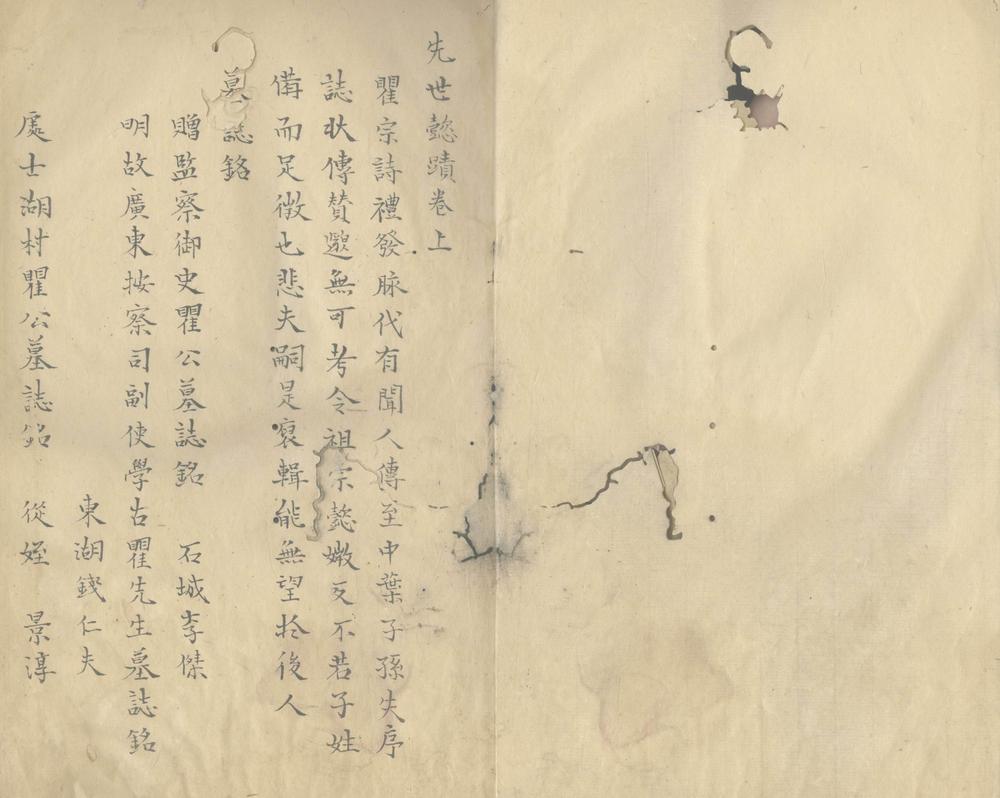 先世懿蹟卷上
瞿宗詩禮發脉代有聞人傳至中葉子孫失序
誌狀傳賛邈無可考令祖宗懿媺反不若子姓
備而足徴也悲夫嗣是裒輯能無望扵後人
墓誌銘
贈監察御史瞿公墓誌銘 石城李傑
明故廣東按察司副使學古瞿先生墓誌銘
東湖錢仁夫
處士湖村瞿公墓誌銘 從姪 景淳